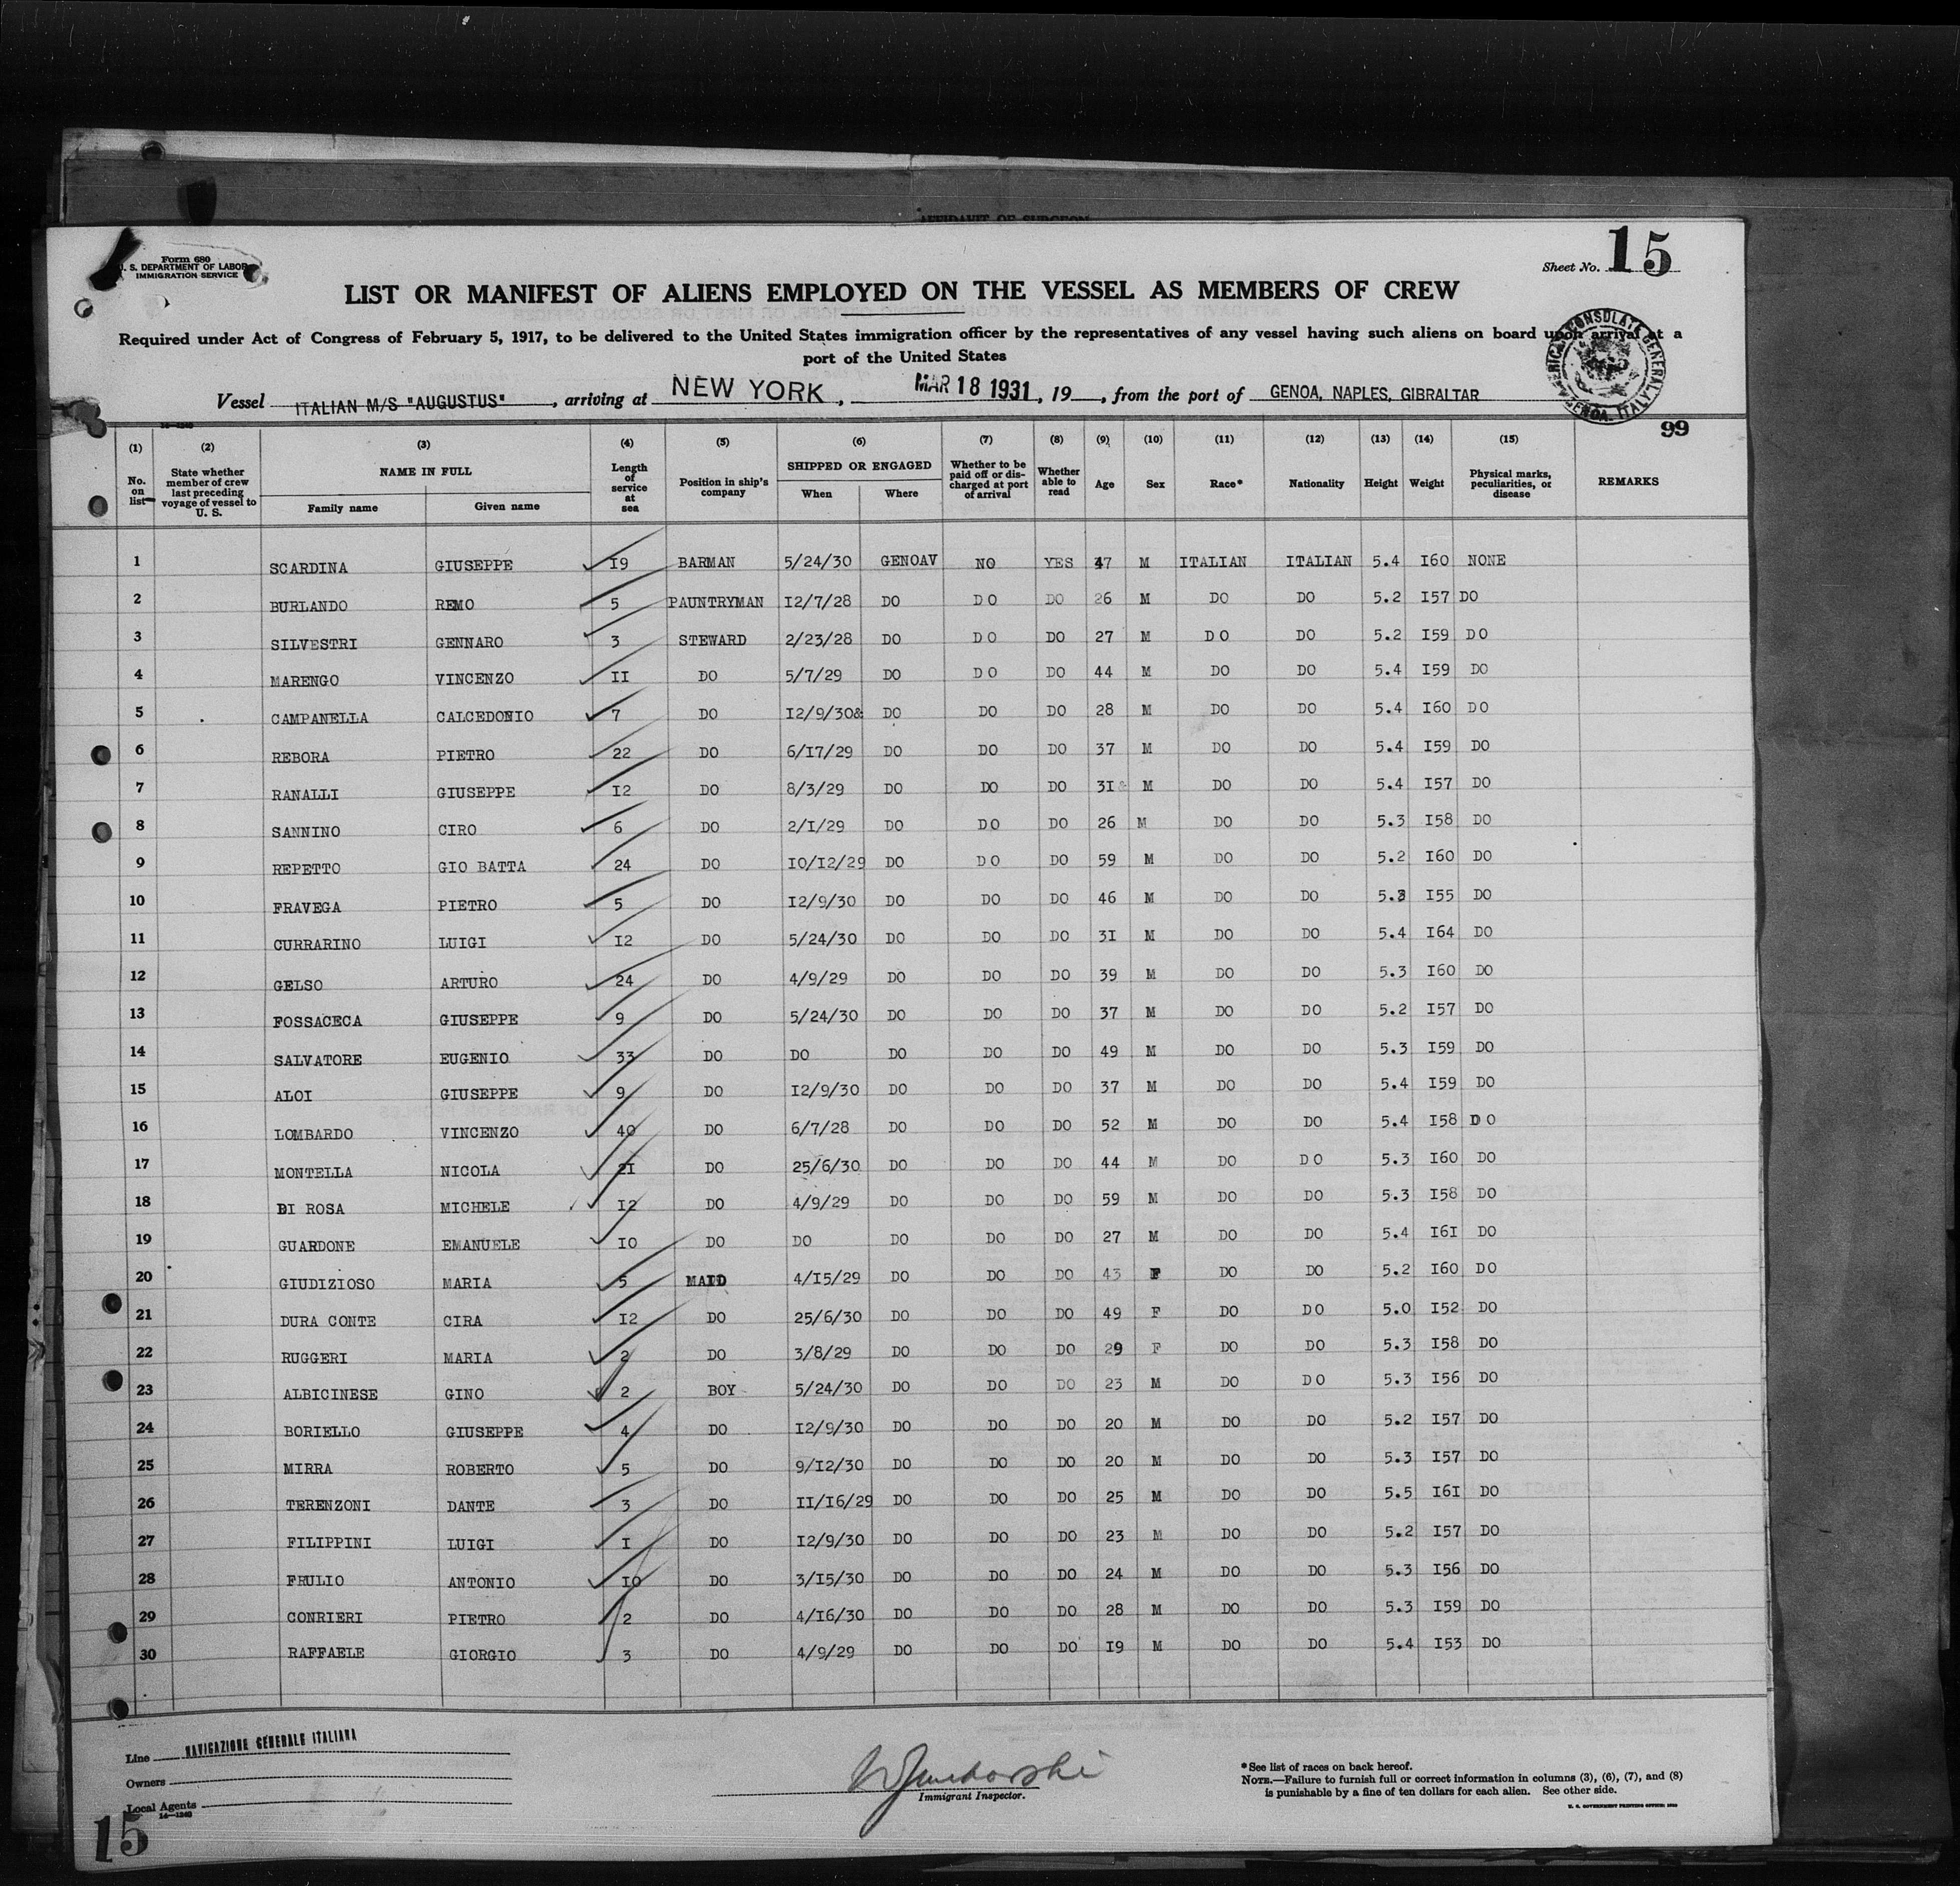 AFFIDAVIT OF SURGEON
Form 680
U. S. DEPARTMENT OF LABOR
IMMIGRATION SERVICE
Sheet No. 15
LIST OR MANIFEST OF ALIENS EMPLOYED ON THE VESSEL AS MEMBERS OF CREW
Required under Act of Congress of February 5, 1917, to be delivered to the United States immigration officer by the representatives of any vessel having such aliens on board upon arrival at a
port of the United States
AMERICAN CONSULATE GENERAL GENOA, ITALY
Vessel ITALIAN M/S "AUGUSTUS", arriving at NEW YORK, MAR 18 1931, 19, from the port of GENOA, NAPLES, GIBRALTAR
99
(1) No. on list (2) State whether member of crew last preceding voyage of vessel to U. S. (3) NAME IN FULL Family name Given name (4) Length of service at sea (5) Position in ship's company (6) SHIPPED OR ENGAGED When Where (7) Whether to be paid off or discharged at port of arrival (8) Whether able to read (9) Age (10) Sex (11) Race* (12) Nationality (13) Height (14) Weight (15) Physical marks, peculiarities, or disease REMARKS
1 SCARDINA GIUSEPPE I9 BARMAN 5/24/30 GENOAV NO YES 47 M ITALIAN ITALIAN 5.4 I60 NONE
2 BURLANDO REMO 5 PAUNTRYMAN I2/7/28 DO DO DO 26 M DO DO 5.2 I57 DO
3 SILVESTRI GENNARO 3 STEWARD 2/23/28 DO DO DO 27 M DO DO 5.2 I59 DO
4 MARENGO VINCENZO II DO 5/7/29 DO DO DO 44 M DO DO 5.4 I59 DO
5 CAMPANELLA CALCEDONIO 7 DO I2/9/30& DO DO DO 28 M DO DO 5.4 I60 DO
6 REBORA PIETRO 22 DO 6/I7/29 DO DO DO 37 M DO DO 5.4 I59 DO
7 RANALLI GIUSEPPE I2 DO 8/3/29 DO DO DO 3I& M DO DO 5.4 I57 DO
8 SANNINO CIRO 6 DO 2/I/29 DO DO DO 26 M DO DO 5.3 I58 DO
9 REPETTO GIO BATTA 24 DO I0/I2/29 DO DO DO 59 M DO DO 5.2 I60 DO
10 FRAVEGA PIETRO 5 DO I2/9/30 DO DO DO 46 M DO DO 5.3 I55 DO
11 CURRARINO LUIGI I2 DO 5/24/30 DO DO DO 3I M DO DO 5.4 I64 DO
12 GELSO ARTURO 24 DO 4/9/29 DO DO DO 39 M DO DO 5.3 I60 DO
13 FOSSACECA GIUSEPPE 9 DO 5/24/30 DO DO DO 37 M DO DO 5.2 I57 DO
14 SALVATORE EUGENIO 33 DO DO DO DO DO 49 M DO DO 5.3 I59 DO
15 ALOI GIUSEPPE 9 DO I2/9/30 DO DO DO 37 M DO DO 5.4 I59 DO
16 LOMBARDO VINCENZO 40 DO 6/7/28 DO DO DO 52 M DO DO 5.4 I58 DO
17 MONTELLA NICOLA 2I DO 25/6/30 DO DO DO 44 M DO DO 5.3 I60 DO
18 DI ROSA MICHELE I2 DO 4/9/29 DO DO DO 59 M DO DO 5.3 I58 DO
19 GUARDONE EMANUELE I0 DO DO DO DO DO 27 M DO DO 5.4 I6I DO
20 GIUDIZIOSO MARIA 5 MAID 4/I5/29 DO DO DO 43 F DO DO 5.2 I60 DO
21 DURA CONTE CIRA I2 DO 25/6/30 DO DO DO 49 F DO DO 5.0 I52 DO
22 RUGGERI MARIA 2 DO 3/8/29 DO DO DO 29 F DO DO 5.3 I58 DO
23 ALBICINESE GINO 2 BOY 5/24/30 DO DO DO 23 M DO DO 5.3 I56 DO
24 BORIELLO GIUSEPPE 4 DO I2/9/30 DO DO DO 20 M DO DO 5.2 I57 DO
25 MIRRA ROBERTO 5 DO 9/I2/30 DO DO DO 20 M DO DO 5.3 I57 DO
26 TERENZONI DANTE 3 DO II/I6/29 DO DO DO 25 M DO DO 5.5 I6I DO
27 FILIPPINI LUIGI I DO I2/9/30 DO DO DO 23 M DO DO 5.2 I57 DO
28 FRULIO ANTONIO I0 DO 3/I5/30 DO DO DO 24 M DO DO 5.3 I56 DO
29 CONRIERI PIETRO 2 DO 4/I6/30 DO DO DO 28 M DO DO 5.3 I59 DO
30 RAFFAELE GIORGIO 3 DO 4/9/29 DO DO DO I9 M DO DO 5.4 I53 DO
Line NAVIGAZIONE GENERALE ITALIANA
Owners
Local Agents
14—1240
15
Immigrant Inspector.
*See list of races on back hereof.
NOTE.—Failure to furnish full or correct information in columns (3), (6), (7), and (8)
is punishable by a fine of ten dollars for each alien. See other side.